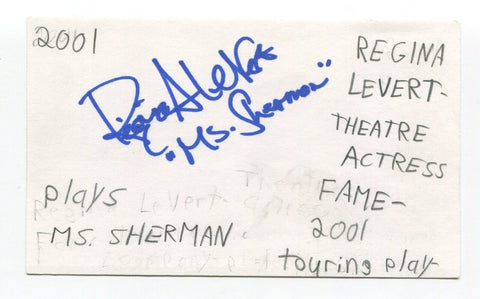 2001
"Ms. Sherman"
plays
MS. SHERMAN
REGINA
LEVERT-
THEATRE
ACTRESS
FAME-
2001
touring play